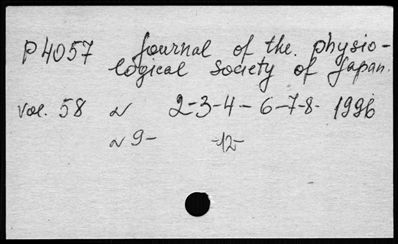 P4057 Journal of the physio-
logical Society of Japan.
vol. 58 N 2-3-4-6-7-8- 1996
N 9- -12-